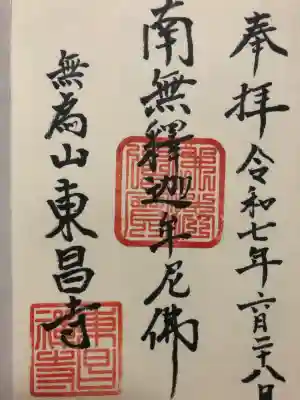 奉拝 令和七年六月二十八日
南無釋迦牟尼佛
無為山東昌寺